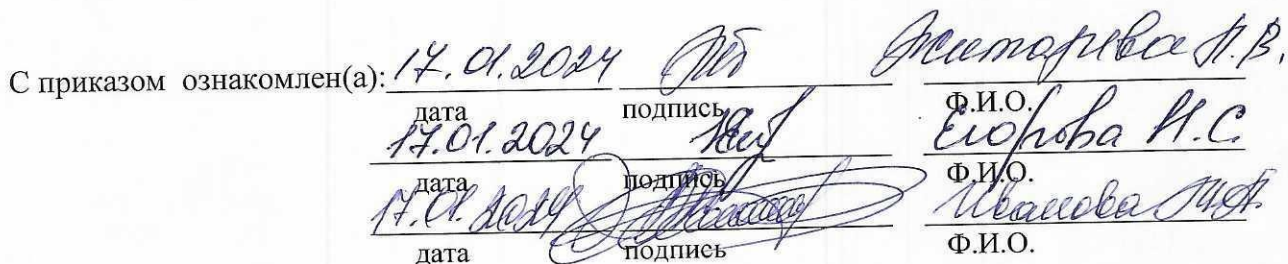 С приказом ознакомлен(а): 17.01.2024 Житарева Н.В.
дата подпись Ф.И.О.
17.01.2024 Егорова Н.С.
дата подпись Ф.И.О.
17.01.2024 Иванова
дата подпись Ф.И.О.